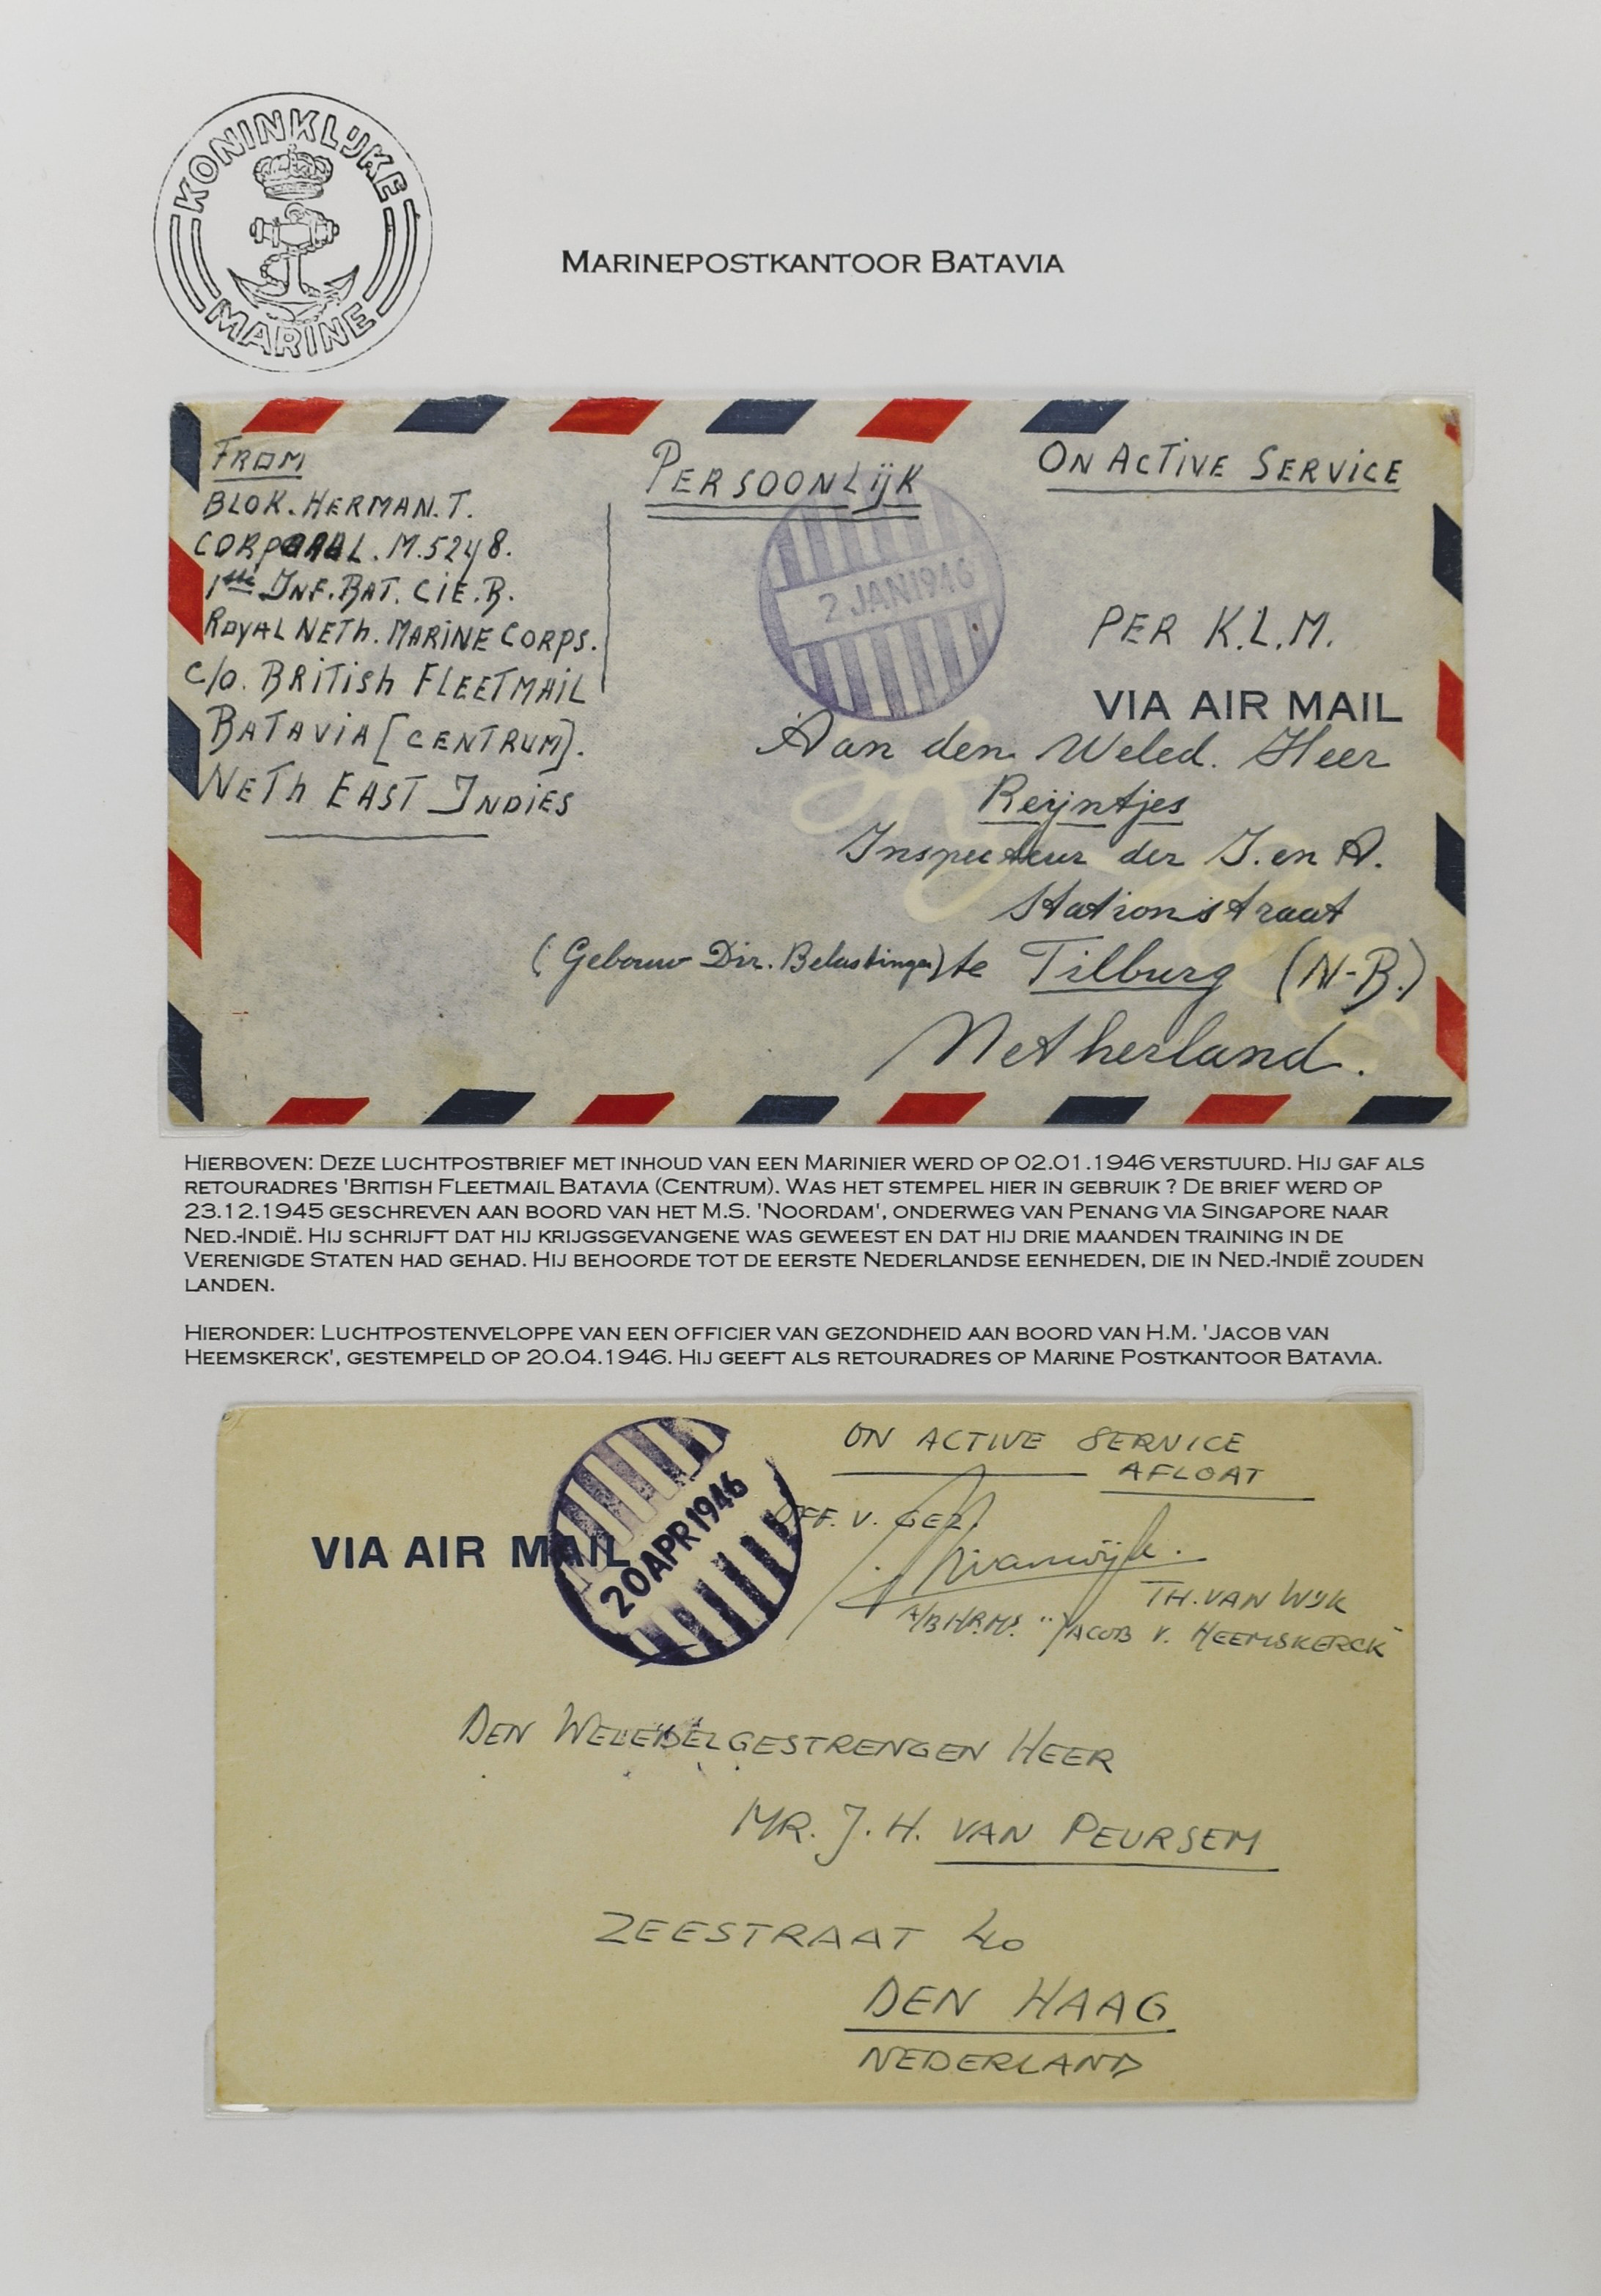 KONINKLIJKE
MARINE
MARINEPOSTKANTOOR BATAVIA
FROM
BLOK. HERMAN. T.
CORPORAAL. M. 5248.
1ste INF. BAT. CIE. B.
ROYAL NETH. MARINE CORPS.
C/O. BRITISH FLEETMAIL
BATAVIA [CENTRUM].
NETH EAST INDIES
PERSOONLIJK
ON ACTIVE SERVICE
2 JAN 1946
PER K.L.M.
VIA AIR MAIL
Aan den Weled. Heer
Reijntjes
Inspecteur der I. en A.
Stationstraat
(Gebouw Dir. Belastingen) te Tilburg (N-B.)
Netherland.
HIERBOVEN: DEZE LUCHTPOSTBRIEF MET INHOUD VAN EEN MARINIER WERD OP 02.01.1946 VERSTUURD. HIJ GAF ALS
RETOURADRES 'BRITISH FLEETMAIL BATAVIA (CENTRUM). WAS HET STEMPEL HIER IN GEBRUIK ? DE BRIEF WERD OP
23.12.1945 GESCHREVEN AAN BOORD VAN HET M.S. 'NOORDAM', ONDERWEG VAN PENANG VIA SINGAPORE NAAR
NED.-INDIË. HIJ SCHRIJFT DAT HIJ KRIJGSGEVANGENE WAS GEWEEST EN DAT HIJ DRIE MAANDEN TRAINING IN DE
VERENIGDE STATEN HAD GEHAD. HIJ BEHOORDE TOT DE EERSTE NEDERLANDSE EENHEDEN, DIE IN NED.-INDIË ZOUDEN
LANDEN.
HIERONDER: LUCHTPOSTENVELOPPE VAN EEN OFFICIER VAN GEZONDHEID AAN BOORD VAN H.M. 'JACOB VAN
HEEMSKERCK', GESTEMPELD OP 20.04.1946. HIJ GEEFT ALS RETOURADRES OP MARINE POSTKANTOOR BATAVIA.
ON ACTIVE SERVICE
AFLOAT
VIA AIR MAIL
20 APR 1946
OFF. V. GEZ.
TH. VAN WIJK
A/B HR.MS. "JACOB V. HEEMSKERCK"
DEN WELEDELGESTRENGEN HEER
MR. J. H. VAN PEURSEM
ZEESTRAAT 40
DEN HAAG
NEDERLAND